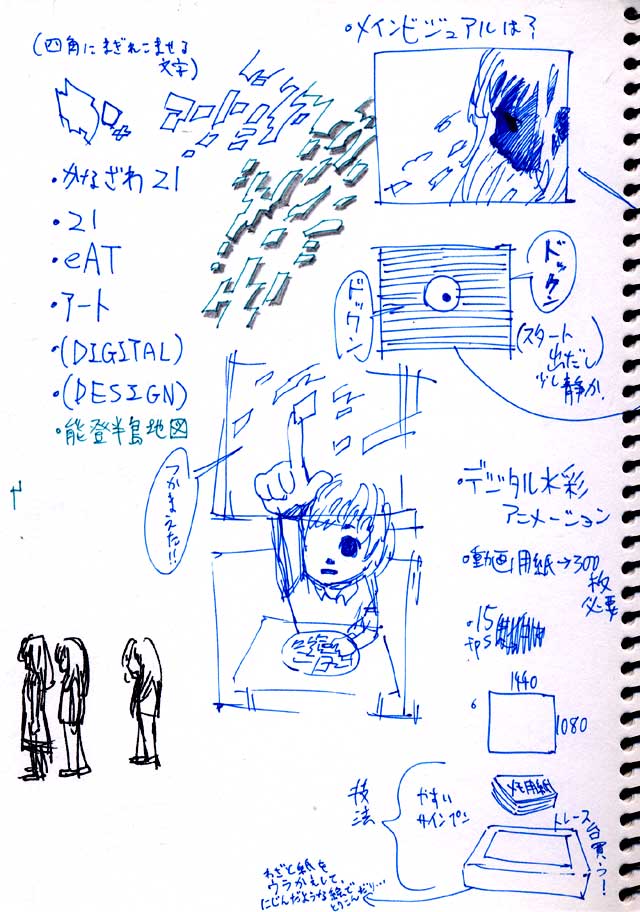 (四角にまぎれこませる
文字)
・かなざわ21
・21
・eAT
・アート
・(DIGITAL)
・(DESIGN)
・能登半島地図
・メインビジュアルは?
ドックン
ドックン
(スタート
出だし
少し静か)
つかまえた!!
・デジタル水彩
アニメーション
・動画用紙→300
枚
必要
・15
fps
1440
1080
技法
やすい
サインペン
メモ用紙
トレース
台買う!
わざと紙を
ウラがえして、
にじんだような絵で
とりこんだり…